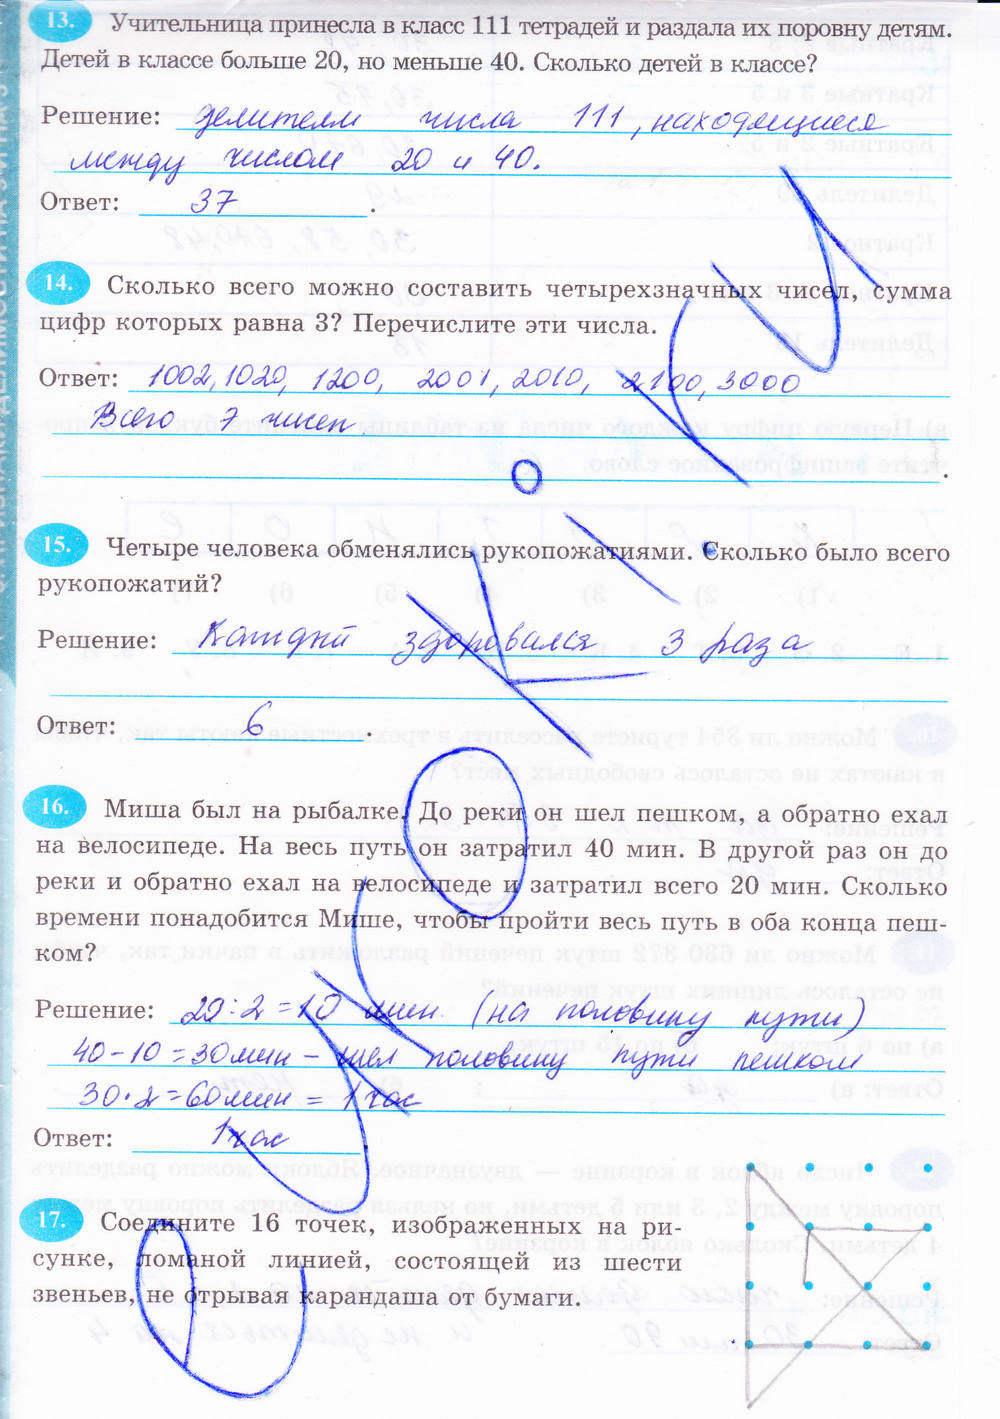 13. Учительница принесла в класс 111 тетрадей и раздала их поровну детям.
Детей в классе больше 20, но меньше 40. Сколько детей в классе?
Решение: делителем числа 111, находящиеся
между числом 20 и 40.
Ответ: 37.
14. Сколько всего можно составить четырехзначных чисел, сумма
цифр которых равна 3? Перечислите эти числа.
Ответ: 1002, 1020, 1200, 2001, 2010, 2100, 3000
Всего 7 чисел
15. Четыре человека обменялись рукопожатиями. Сколько было всего
рукопожатий?
Решение: Каждый здоровался 3 раза
Ответ: 6.
16. Миша был на рыбалке. До реки он шел пешком, а обратно ехал
на велосипеде. На весь путь он затратил 40 мин. В другой раз он до
реки и обратно ехал на велосипеде и затратил всего 20 мин. Сколько
времени понадобится Мише, чтобы пройти весь путь в оба конца пеш-
ком?
Решение: 20:2=10 мин. (на половину пути)
40-10=30мин - шел половину пути пешком
30·2=60мин = 1 час
Ответ: 1 час
17. Соедините 16 точек, изображенных на ри-
сунке, ломаной линией, состоящей из шести
звеньев, не отрывая карандаша от бумаги.